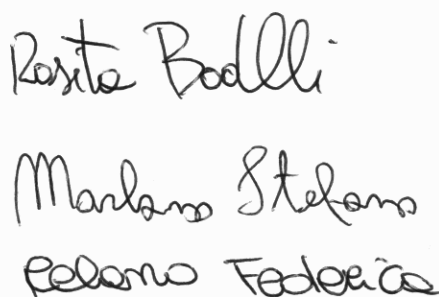 Rosita Bodlli
Marlano Stefano
Pelano Federica